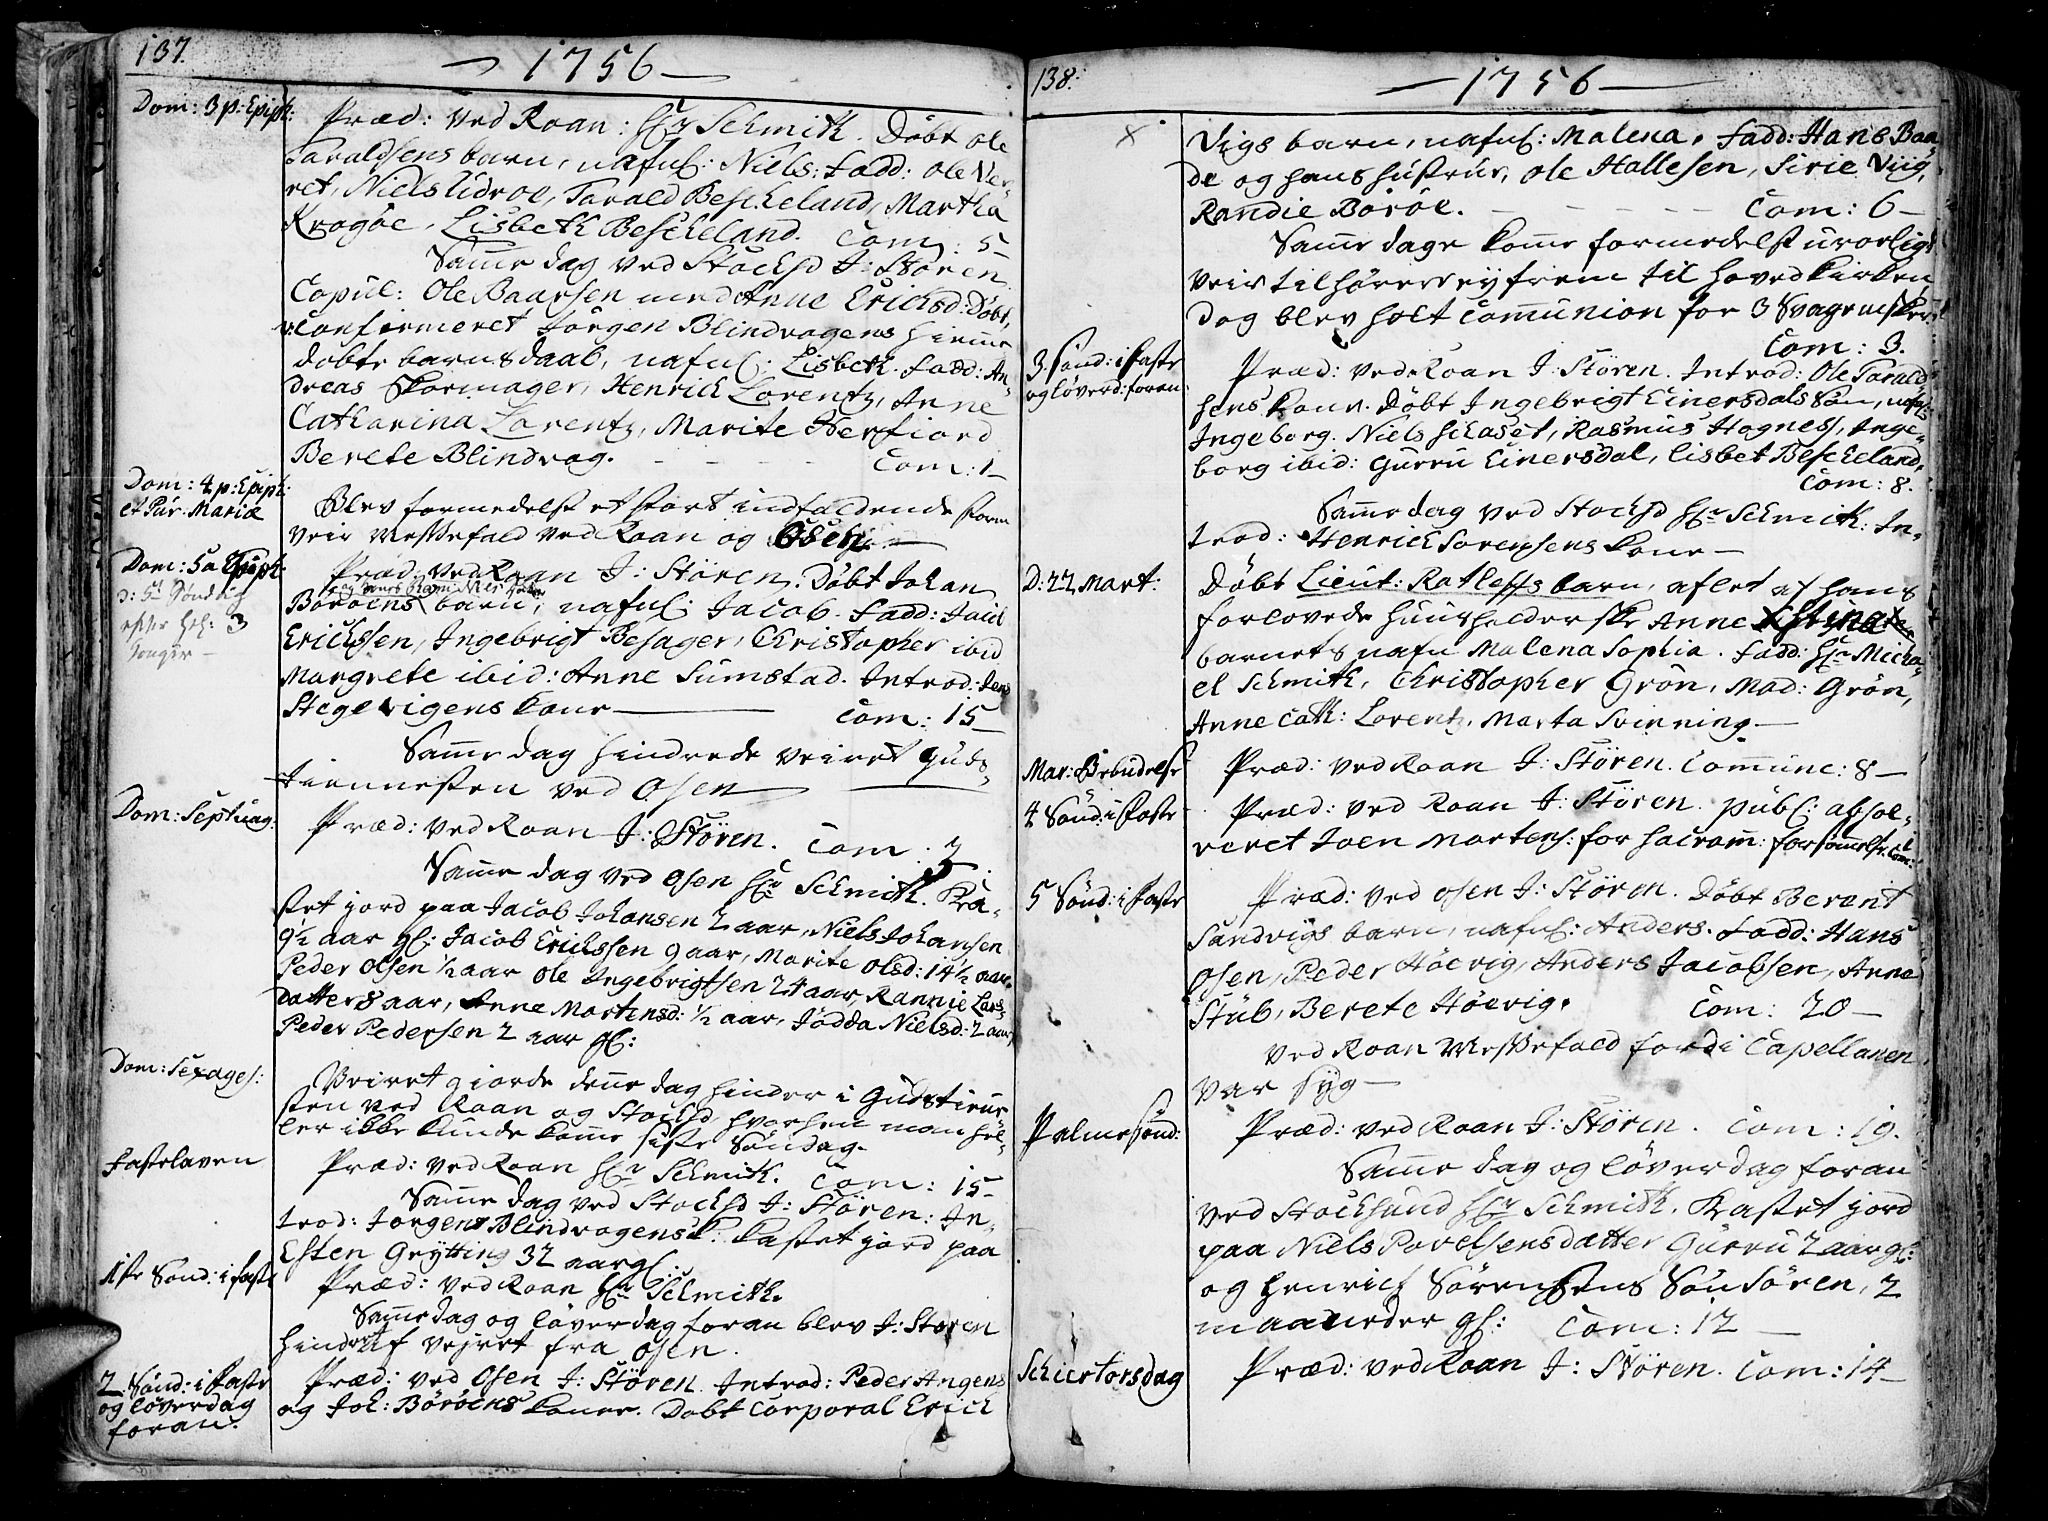 137.
1756
Dom: 3 p: Epiph:
Præd: ved Roan: Hr Schmith. Døbt Ole
Taraldsens barn, nafnl: Niels: Fadd: Ole Ver-
ret, Niels Udroe, Tarald Bescheland, Martha
Kragøe, Lisbeth Bescheland. Com: 5
Samme dag ved Stocksd J: Støren
Copul: Ole Baarsen med Anne Erichsd: Døbt,
confirmeret Jørgen Blindvogens hiemme
døbte barns daab, nafnl: Lisbeth. Fadd: An-
dreas Skormager, Henrich Lorentz, Anne
Catharina Lorentz, Marite Herfiord
Berete Blindvog. Com: 1
Dom: 4 p: Epiph:
et Pur. Mariæ
Blev formedelst et stort indfaldende storm
veir Messefald ved Roan og Osen
Dom: 5 a Epiph:
d: 5t Søndag
efter Hel: 3
Konger
Præd: ved Roan J: Støren. Døbt Johan
Børøens barn, nafnl: Jacob. Fadd: Jacob
Erichsen, Ingebrigt Besager, Christopher ibid
Margrete ibid: Anne Sumstad. Introd: Jens
Stegevigens kone Com: 15
Samme dag hindrede veiret Guds
tiennesten ved Osen
Dom: Septuag:
Præd: ved Roan J: Støren. Com: 3.
Samme dag ved Osen Hr Schmith. Ka-
stet jord paa Jacob Johansen 2 aar, Niels Johansen
9½ aar gl: Jacob Erichssen 9 aar, Marite Olsd: 14½ aar
Peder Olsen ½ aar Ole Ingebrigtsen 24 aar, Rannie Lars
Datter 8 aar, Anne Mortensd: ½ aar, Jødda Nielsd: 2 aar,
Peder Pedersen 2 aar gl:
Dom: Sexages:
Veiret giorde denne dag hinder i Gudstienne
sten ved Roan og Stocksd hvorhen man hel-
ler ikke kunde komme siste Søndag.
Fastelaven
Præd: ved Roan Hr Schmith. Com: 15
Samme dag ved Stocksd J: Støren: In-
trod: Jørgen Blindvogens k: Kastet jord paa
Esten Grytting 32 aar gl:
1ste Sønd: i faste
Præd: ved Roan Hr Schmith.
Samme dag og Løverdag foran blev J: Støren
hindret af vejret fra Osen.
2. Sønd: i Faste
og Løverdag
foran.
Præd: ved Osen J: Støren. Introd: Peder Angens
og Joh: Børøens koner. Døbt Corporal Erich
138.
1756
x
Vigs barn, nafnl: Malena. Fadd: Hans Baa
de og hans hustrue, Ole Hallesen, Sirie Viig,
Randie Børøe. Com: 6
Samme dage komme formedelst uroeligt
veir tilhørere ey frem til hovedkirken
dog blev holt Communion for 3 Svagemisker
Com: 3.
3 Sønd: i Faste
og Løverd: foran
Præd: ved Roan J: Støren. Introd: Ole Tarald
sens kone. Døbt Ingebrigt Einersdals Søn, nafnl:
Ingeborg. Niels Hhaset, Rasmus Hognes, Inge-
borg ibid: Gurru Einersdal, Lisbet Bescheland,
Com: 8.
Samme dag ved Stocksd Hr Schmith: In-
trod: Henrich Sørensens kone
D: 22 Mart:
Døbt Lieut: Ratleffs barn, aflet af hans
forlovede huusholderske Anne
barnets nafn Malena Sophia. Fadd: Hr Micha-
el Schmith, Christopher Grøn, Mad: Grøn,
Anne Cath: Lorentz, Marta Svinning
Mar: Bebudelse
Præd: ved Roan J: Støren. Commune: 8
4 Sønd: i Faste
Præd: ved Roan J: Støren. publ: absol-
veret Joen Mortens: for Sacram: forsømmelse. Com:
5 Sønd: i Faste
Præd: ved Osen J: Støren. Døbt Berent
Sandvigs barn, nafnl: Anders. Fadd: Hans
Osen, Peder Høevig, Anders Jacobsen, Anne
Stub, Berete Høevig. Com: 20
Ved Roan Messefald fordi Capellanen
var syg
Palmesønd:
Præd: ved Roan J: Støren. Com: 19.
Samme dag og Løverdag foran
ved Stocksund Hr Schmith. Kastet jord
paa Niels Povelsens datter Gurru 2 aar gl:
og Henrich Sørensens Søn Søren, 2
maaneder gl: Com: 12
Schiertorsdag
Præd: ved Roan J: Støren. Com: 14